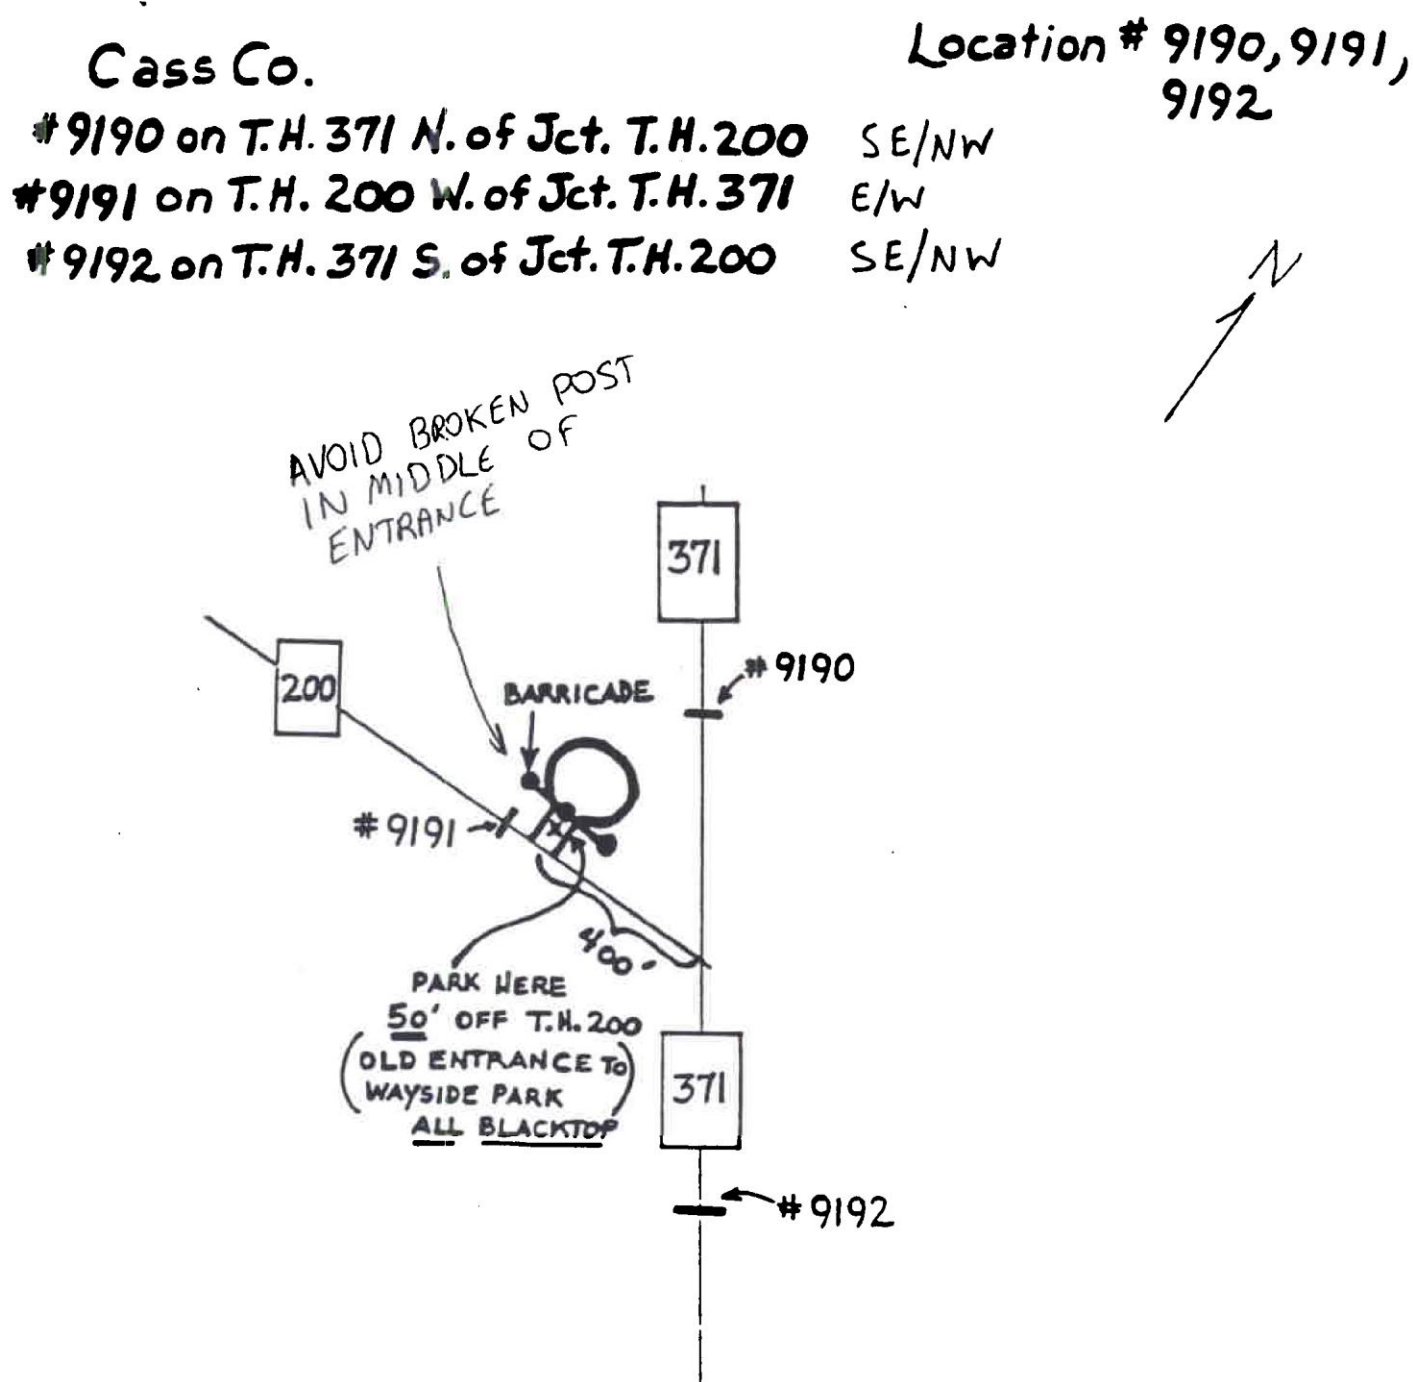 Cass Co.
Location # 9190, 9191,
9192
#9190 on T.H. 371 N. of Jct. T.H. 200 SE/NW
#9191 on T.H. 200 W. of Jct. T.H. 371 E/W
#9192 on T.H. 371 S. of Jct. T.H. 200 SE/NW
N
AVOID BROKEN POST
IN MIDDLE OF
ENTRANCE
371
#9190
200
BARRICADE
#9191
400'
PARK HERE
50' OFF T.H. 200
(OLD ENTRANCE TO
WAYSIDE PARK)
ALL BLACKTOP
371
#9192